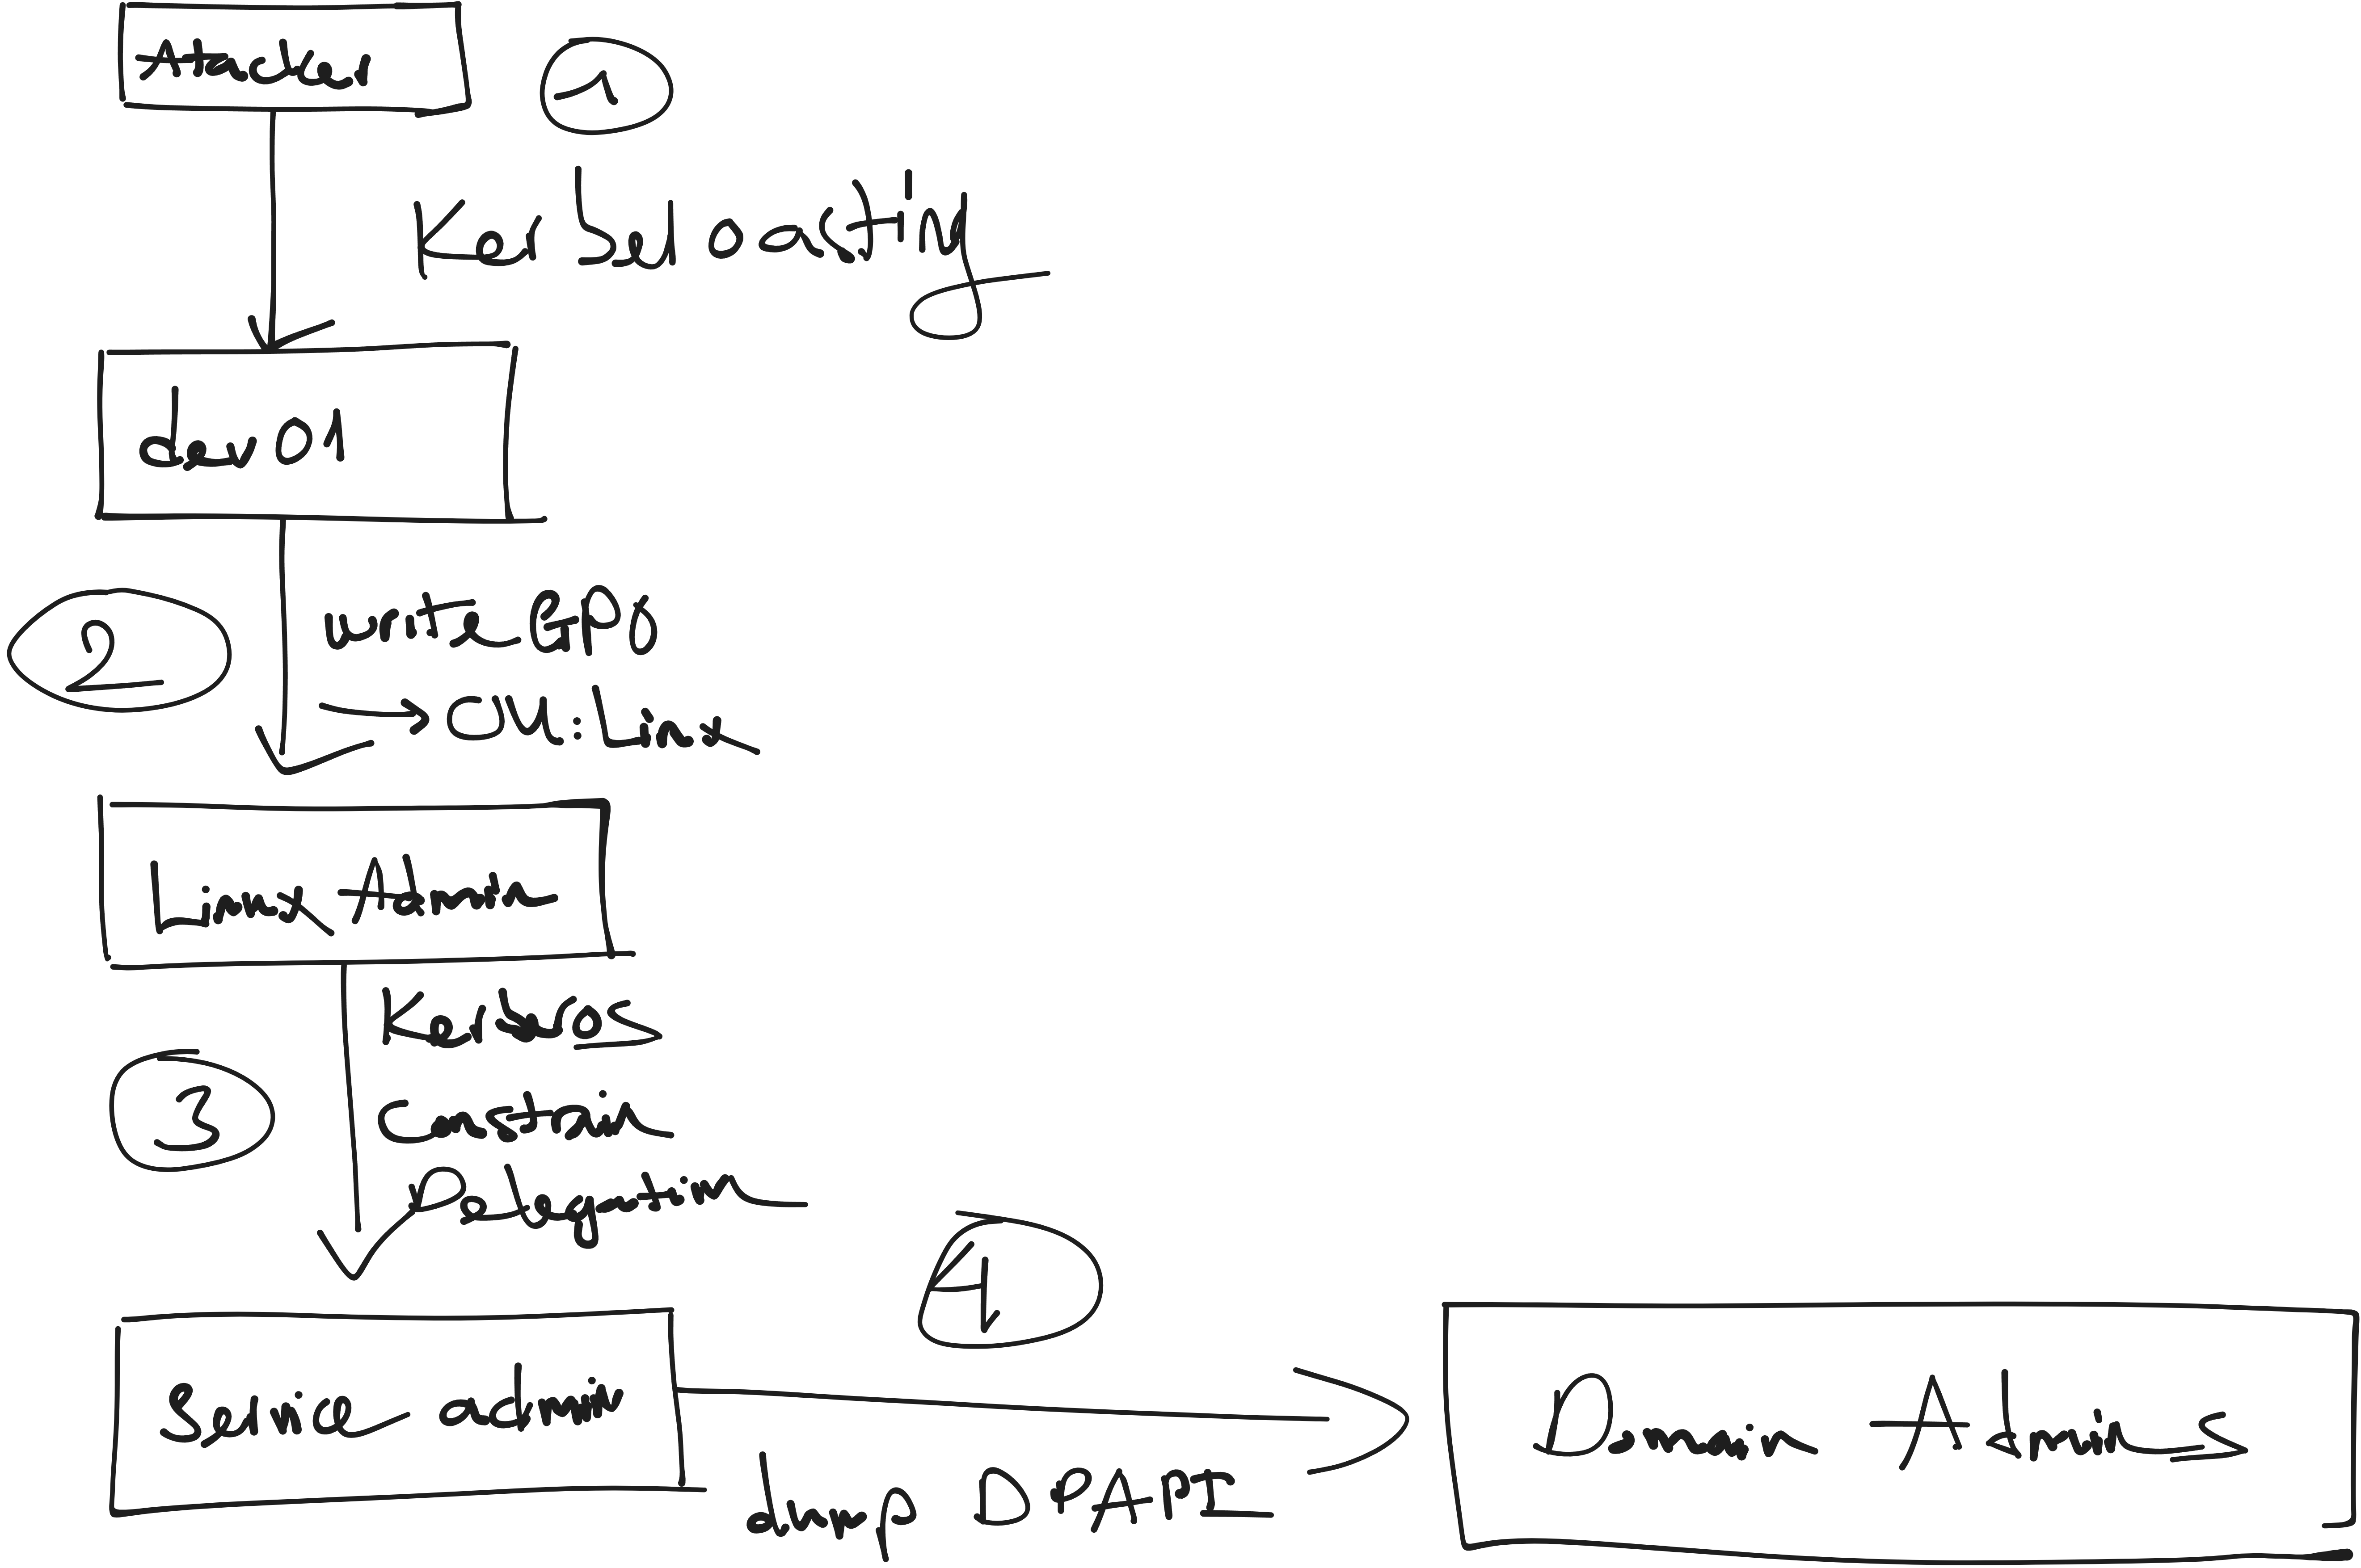 Attacker
1
Kerberoasting
dev01
2
write GPO
→ OU: Linux
Linux Admin
Kerberos
3
Constrain
Delegation
4
Service admin
Domain Admins
dump DPAPI